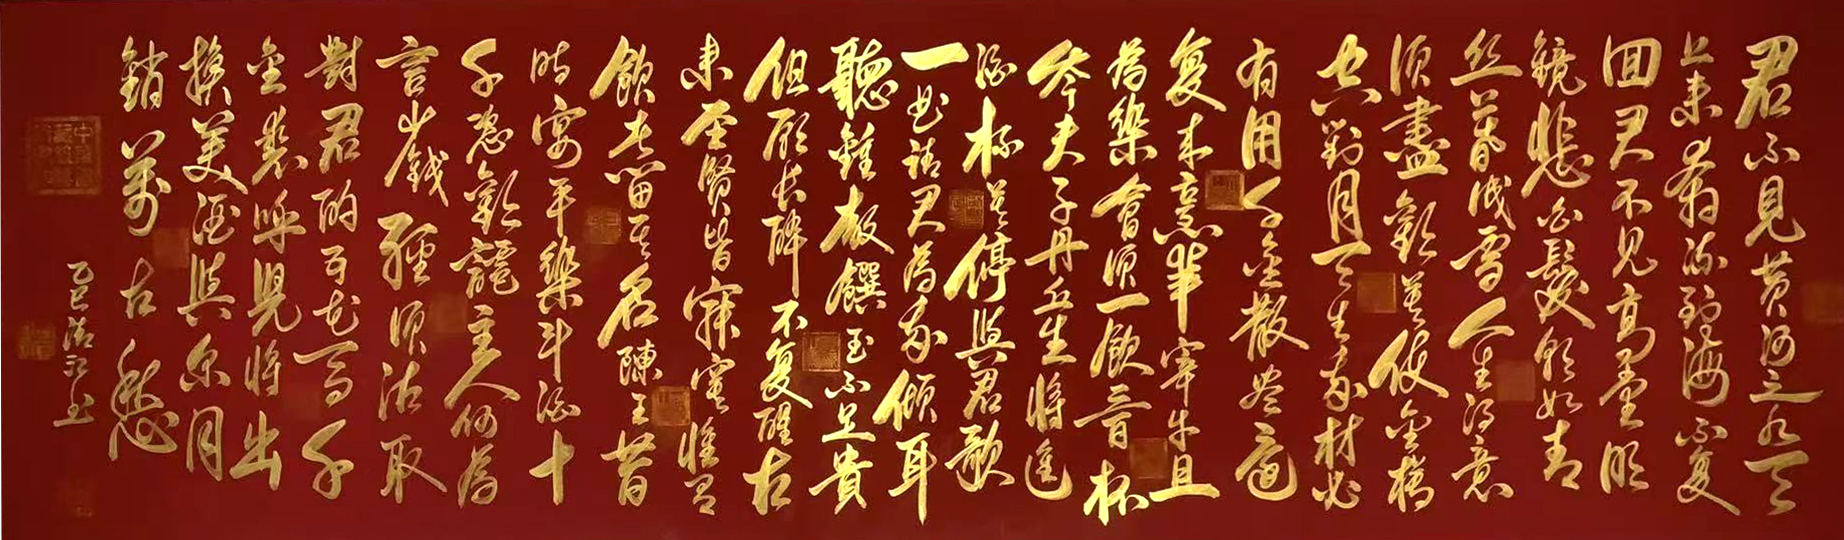 君不見黄河之水天
上来奔流到海不复
回君不見高堂明
鏡悲白髮朝如青
丝暮成雪人生得意
須盡歡莫使金樽
空對月天生我材必
有用千金散盡還
复來烹羊宰牛且
為樂會須一飲三百杯
岑夫子丹丘生將進
酒杯莫停與君歌
一曲請君為我傾耳
聽鐘鼓饌玉不足貴
但願長醉不复醒古
来聖賢皆寂寞惟有
飲者留其名陳王昔
時宴平樂斗酒十
千恣歡謔主人何為
言少錢徑須沽取
對君酌五花馬千
金裘呼兒將出
換美酒與尔同
銷萬古愁
乙巳